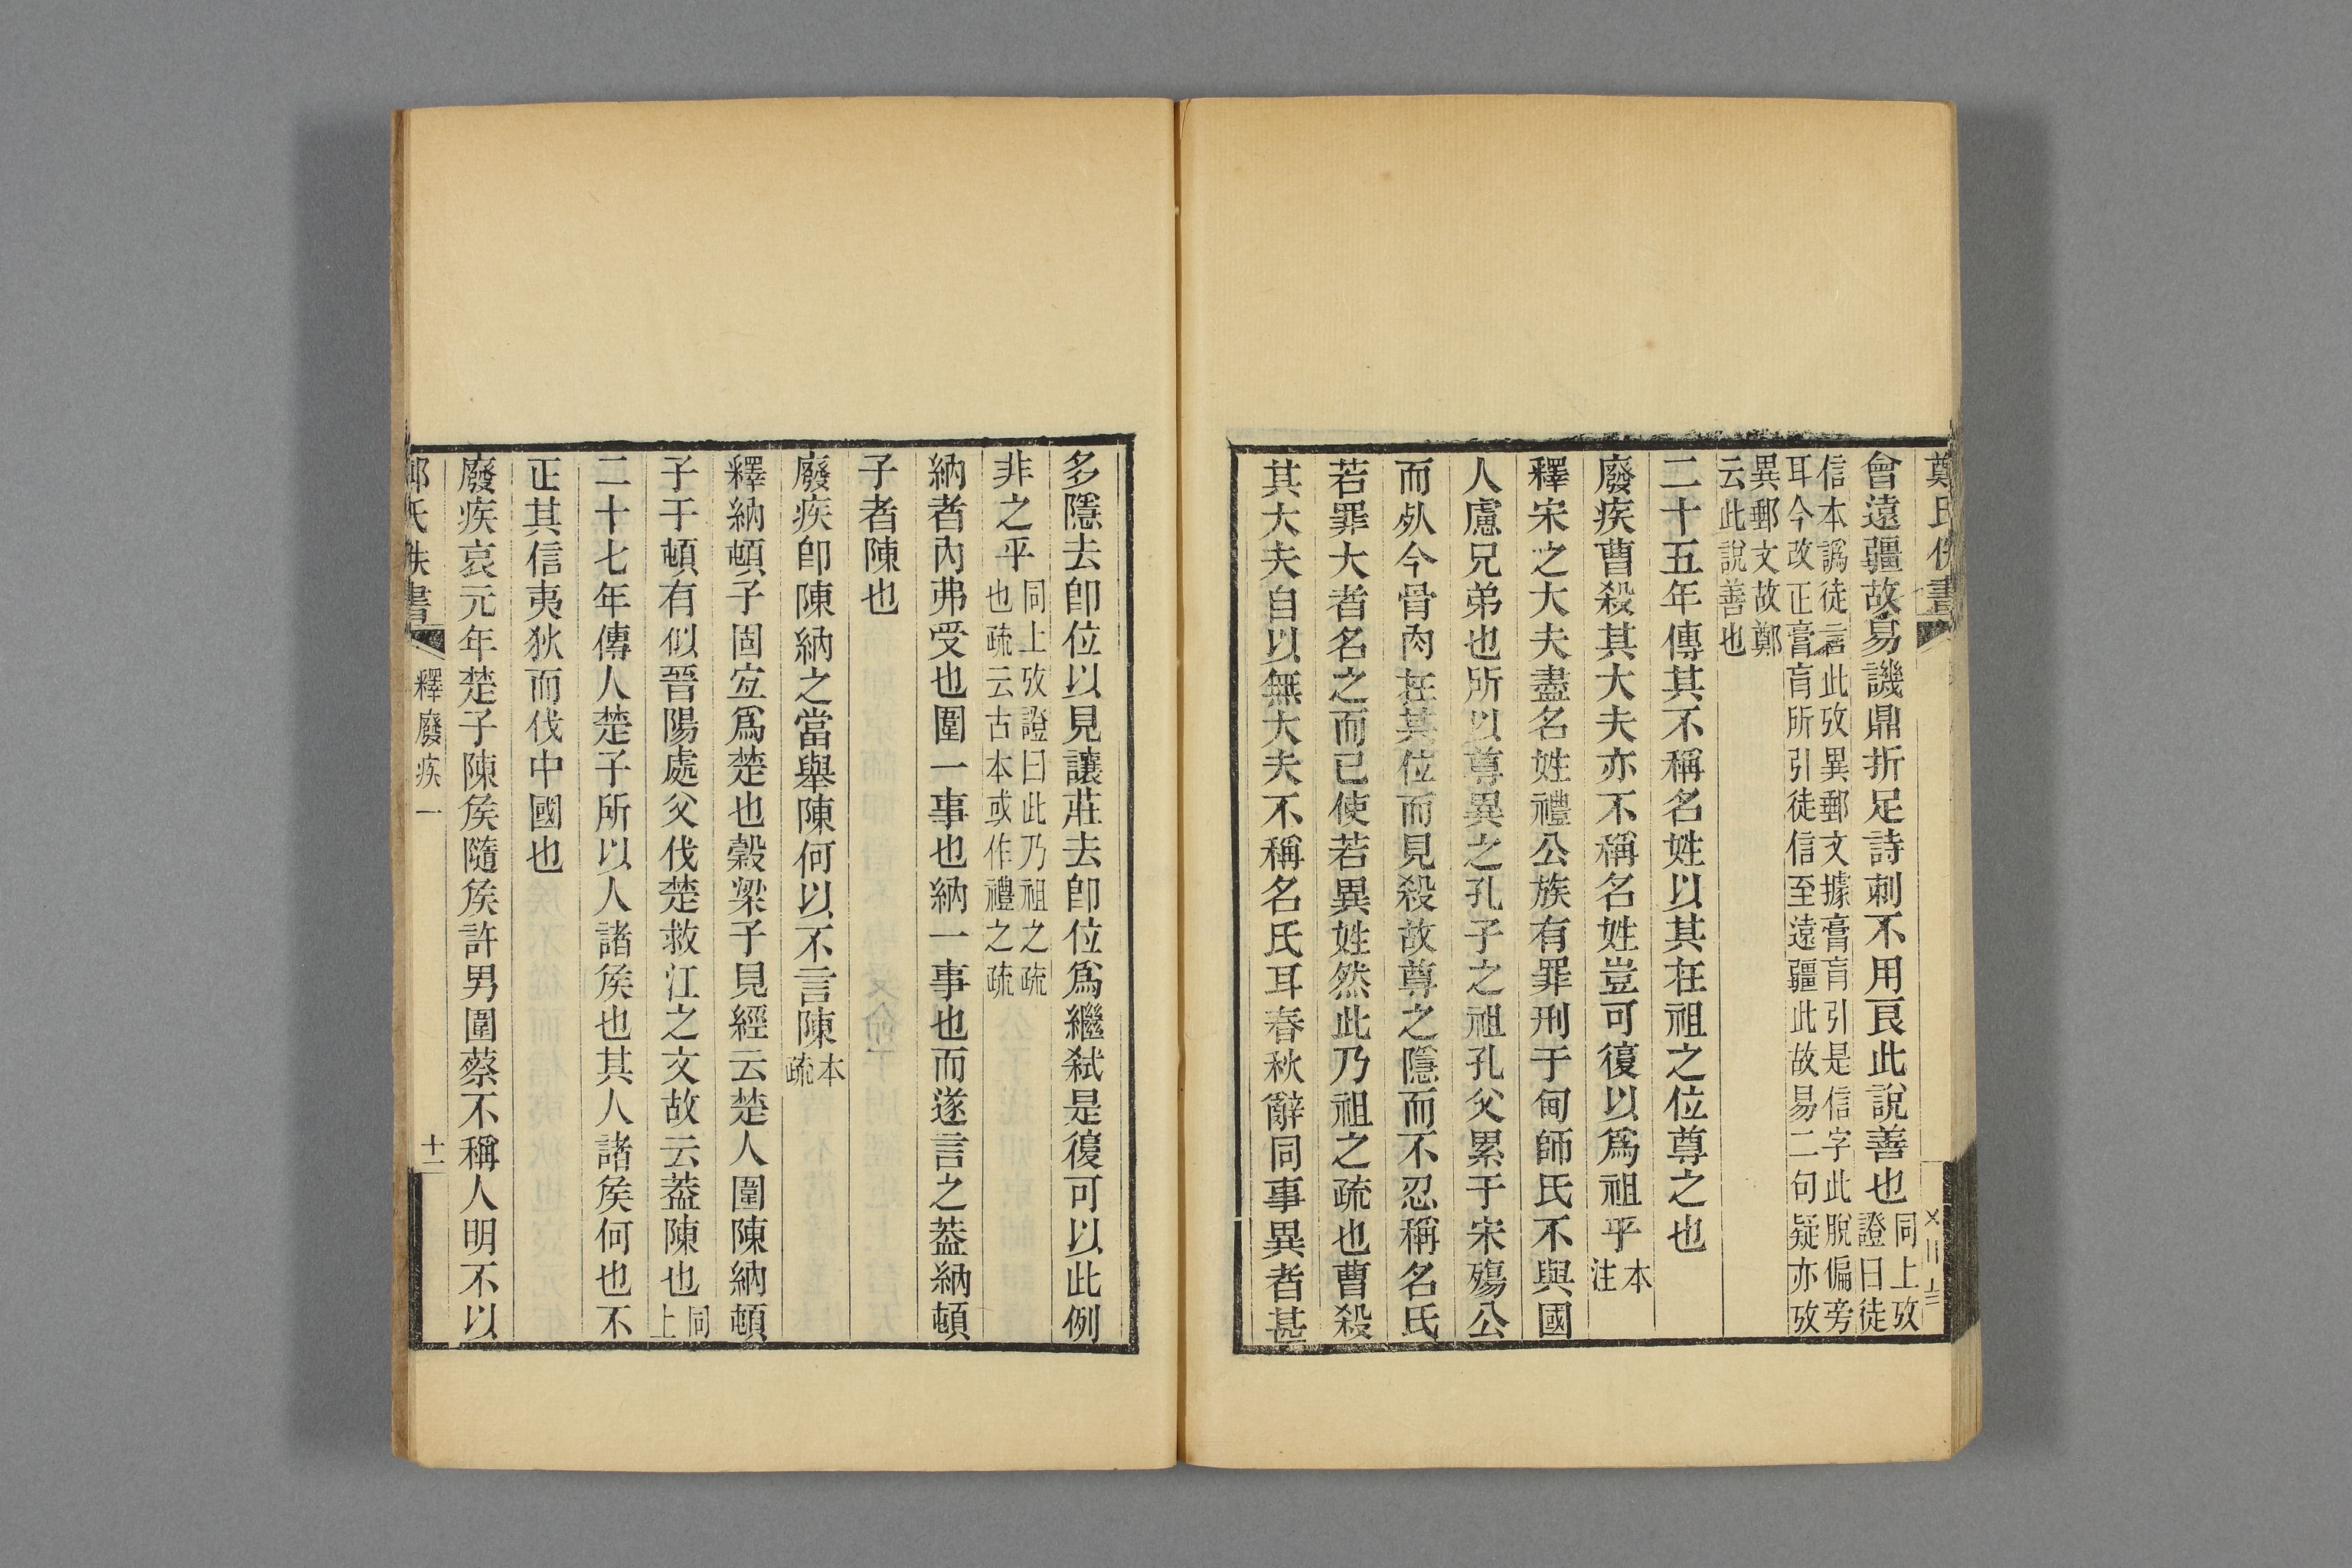 鄭氏佚書
曾遠疆故易譏鼎折足詩刺不用良此說善也同上攷證曰徒
信本譌徒言此攷異郵文據膏肓引是信字此脫偏旁
耳今改正膏肓所引徒信至遠疆此故易二句疑亦攷
異郵文故鄭
云此說善也
二十五年傳其不稱名姓以其在祖之位尊之也
廢疾曹殺其大夫亦不稱名姓豈可復以爲祖乎本注
釋宋之大夫盡名姓禮公族有罪刑于甸師氏不與國
人慮兄弟也所以尊異之孔子之祖孔父累于宋殤公
而死今骨肉在其位而見殺故尊之隱而不忍稱名氏
若罪大者名之而已使若異姓然此乃祖之疏也曹殺
其大夫自以無大夫不稱名氏耳春秋辭同事異者甚
多隱去卽位以見讓莊去卽位爲繼弒是復可以此例
非之乎同上攷證曰此乃祖之疏也疏云古本或作禮之疏
納者內弗受也圍一事也納一事也而遂言之葢納頓
子者陳也
廢疾卽陳納之當舉陳何以不言陳本疏
釋納頓子固宐爲楚也穀梁子見經云楚人圍陳納頓
子于頓有似晉陽處父伐楚救江之文故云葢陳也同上
二十七年傳人楚子所以人諸矦也其人諸矦何也不
正其信夷狄而伐中國也
廢疾哀元年楚子陳矦隨矦許男圍蔡不稱人明不以
釋廢疾一
十二